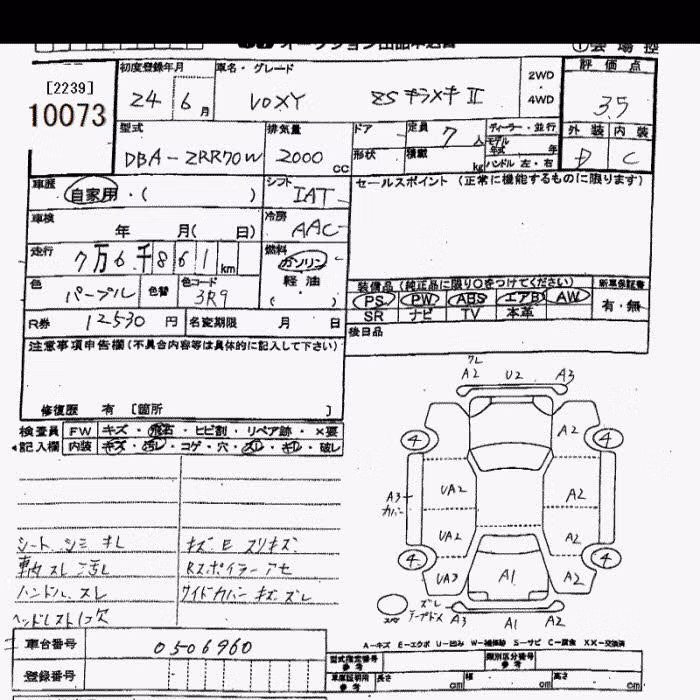 初度登録年月 車名・グレード 2WD・4WD 評価点
[2239]
10073
24 6月 VOXY ZS キラメキ II 3.5
型式 排気量 ドア 定員 7人 ディーラー・並行 外装 内装
DBA-ZRR70W 2000cc 形状 積載 kg モデル年式 年 ハンドル 左・右 D C
車歴 自家用・( ) シフト IAT セールスポイント (正常に機能するものに限ります)
車検 年 月( 日) 冷房 AAC
走行 7万6千861km 燃料 ガソリン 軽油 ( )
色 パープル 色替 色コード 3R9
装備品 (純正品に限り○をつけてください) 新車保証書
PS PW ABS エアB AW 有・無
SR ナビ TV 本革
R券 12530円 名変期限 月 日 後日品
注意事項申告欄 (不具合内容等は具体的に記入して下さい)
修復歴 有 [箇所 ]
検査員 FW キズ・飛石・ヒビ割・リペア跡・×要
記入欄 内装 キズ・汚レ・コゲ・穴・スレ・キレ・破レ
A2 U2 A3
A2
4 4
A3 カバー UA2 A2
UA2 A2
4 4
UA3 A1 A2
A3 A1 A2
シート シミ キレ キズ E スリキズ
車内 スレ 汚レ Rスポイラー アセ
ハンドル スレ サイドカバー キズ ズレ
ヘッドレスト1欠
A-キズ E-エクボ U-凹み W-補修跡 S-サビ C-腐食 XX-交換済
車台番号 0506960
登録番号
型式指定番号 参考 類別区分番号 参考
車庫証明用 参考 長さ cm 幅 cm 高さ cm